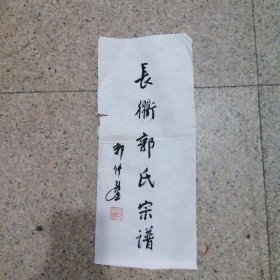 長衢郭氏宗谱